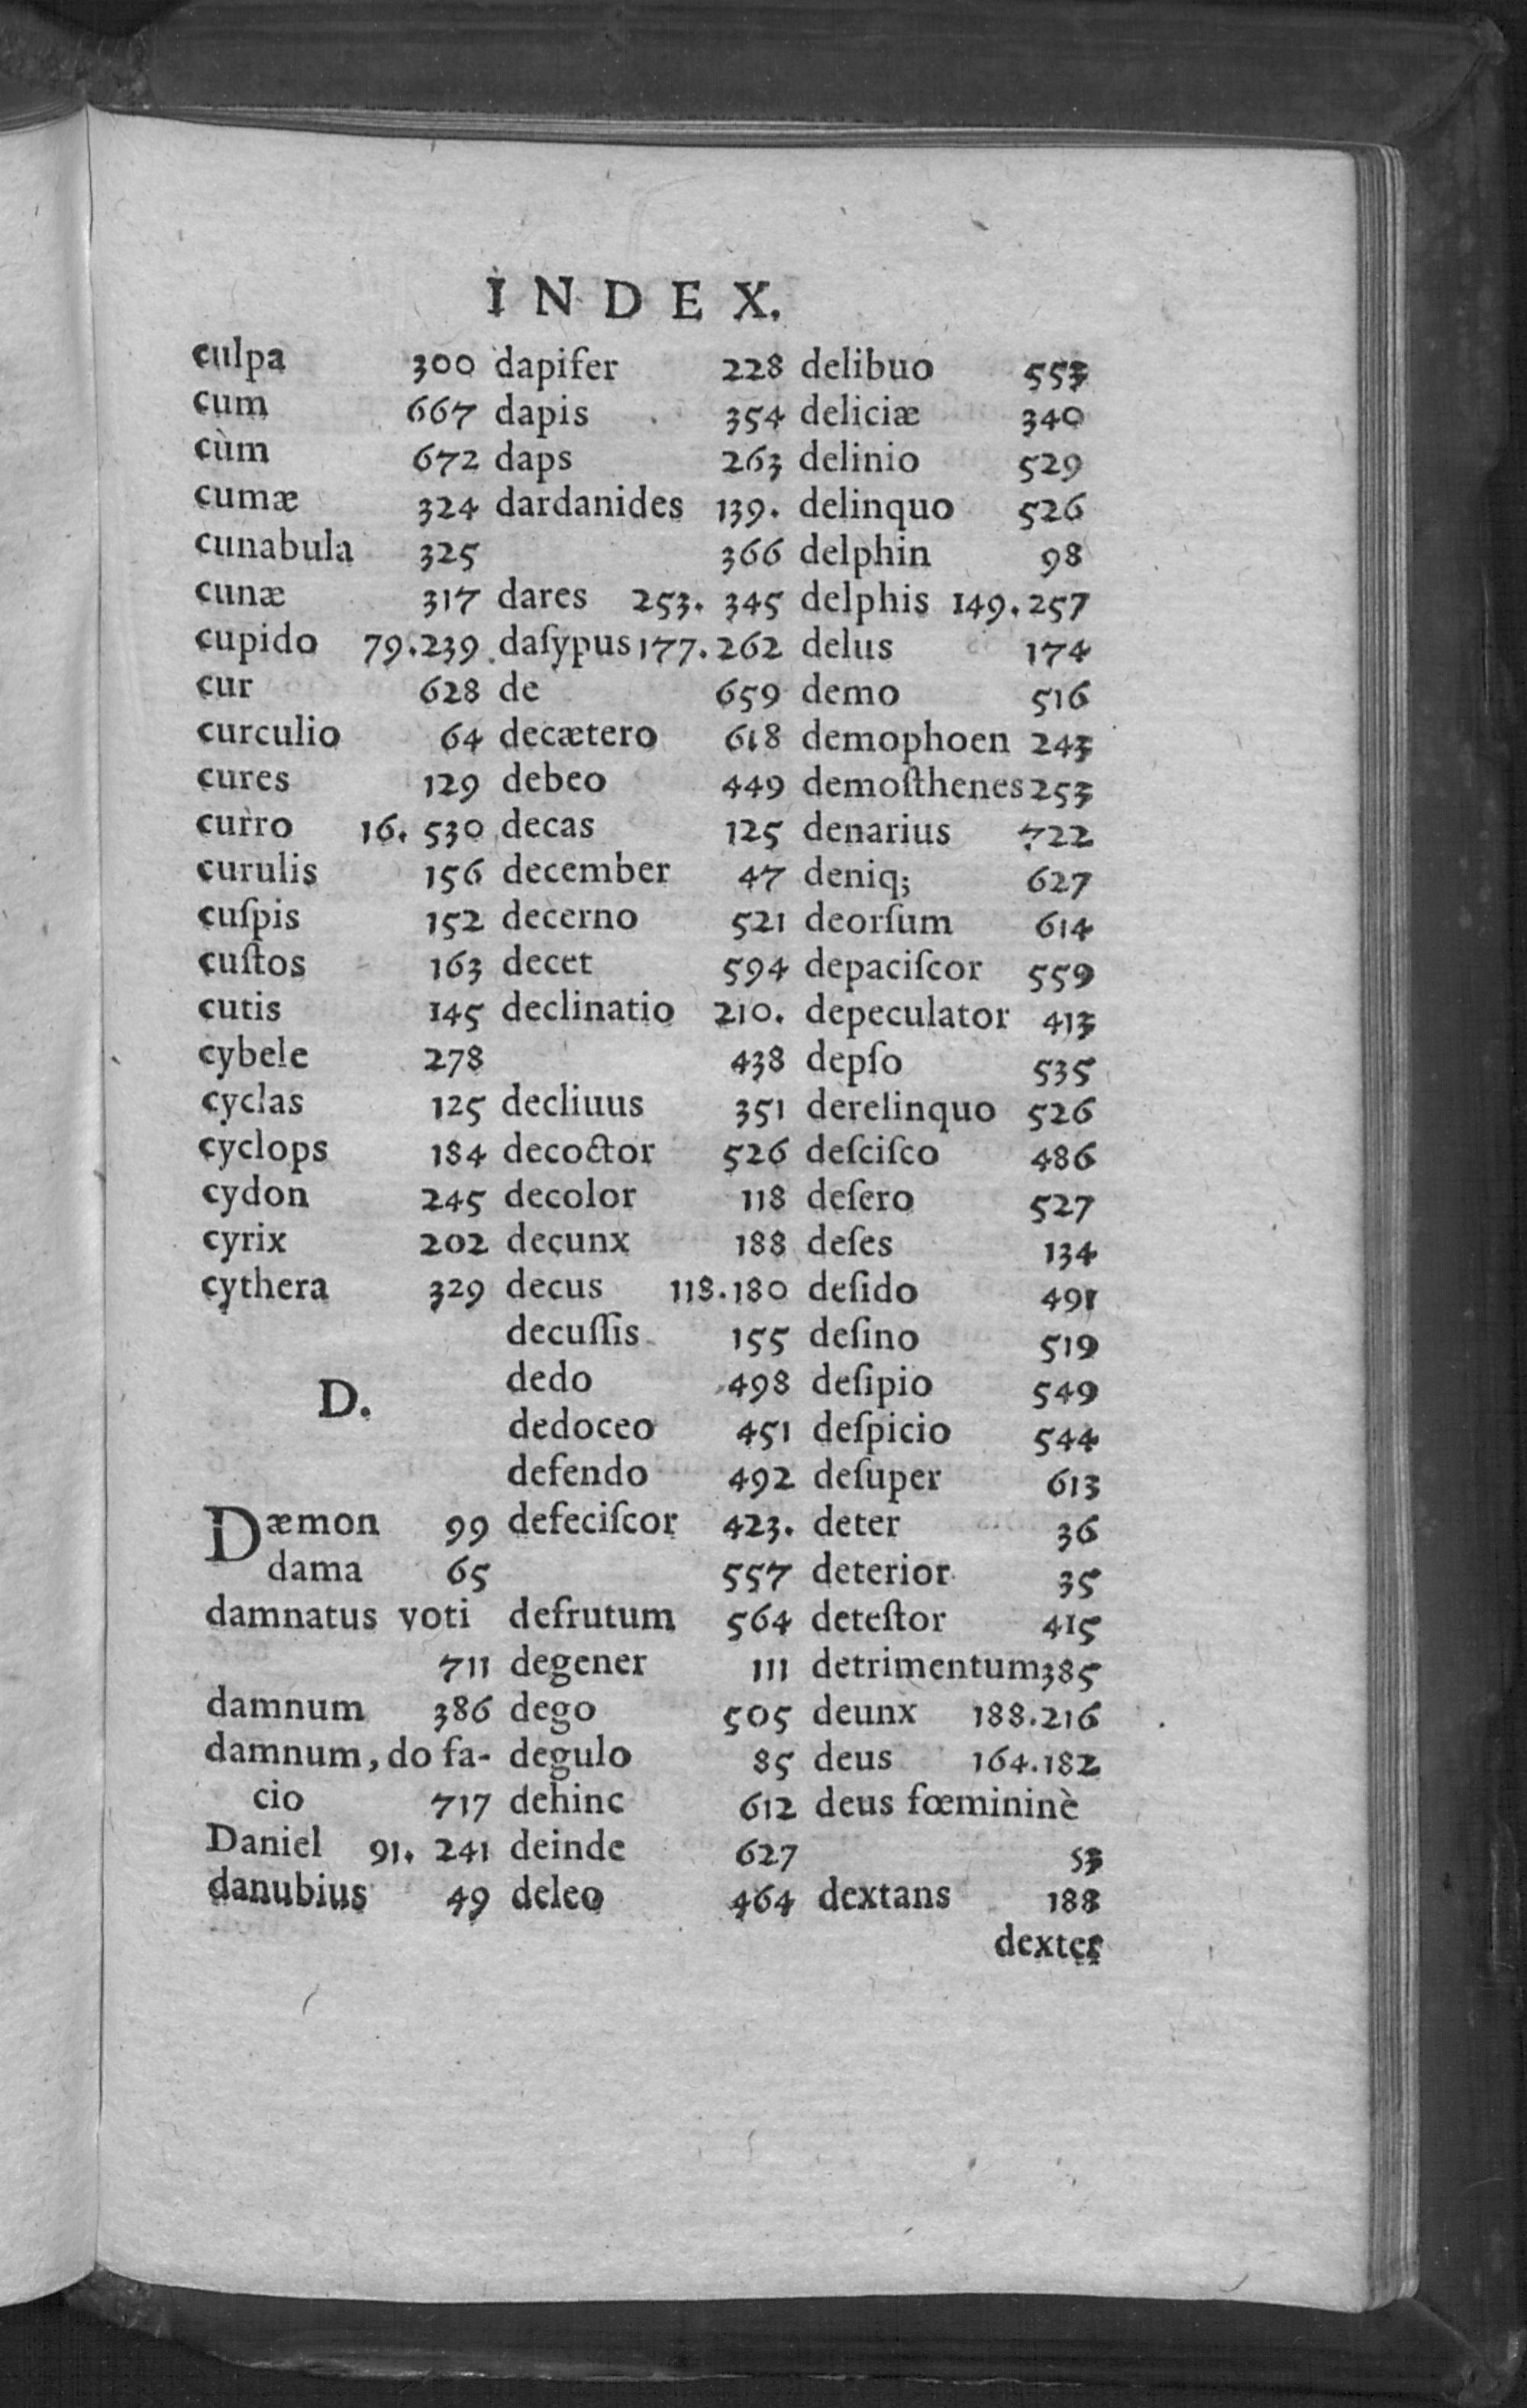 INDEX.
culpa 300
cum 667
cùm 672
cumæ 324
cunabula 325
cunæ 317
cupido 79.239
cur 628
curculio 64
cures 129
curro 16. 530
curulis 156
cuſpis 152
cuſtos 163
cutis 145
cybele 278
cyclas 125
cyclops 184
cydon 245
cyrix 202
cythera 329
D.
Dæmon 99
dama 65
damnatus voti
711
damnum 386
damnum, do fa-
cio 717
Daniel 91. 241
danubius 49
dapifer 228
dapis 354
daps 263
dardanides 139.
366
dares 253. 345
daſypus 177. 262
de 659
decætero 618
debeo 449
decas 125
december 47
decerno 521
decet 594
declinatio 210.
438
decliuus 351
decoctor 526
decolor 118
decunx 188
decus 118.180
decuſſis 155
dedo 498
dedoceo 451
defendo 492
defeciſcor 423.
557
defrutum 564
degener 111
dego 505
degulo 85
dehinc 612
deinde 627
deleo 464
delibuo 553
deliciæ 340
delinio 529
delinquo 526
delphin 98
delphis 149.257
delus 174
demo 516
demophoen 243
demoſthenes 253
denarius 722
deniq; 627
deorſum 614
depaciſcor 559
depeculator 413
depſo 535
derelinquo 526
deſciſco 486
deſero 527
deſes 134
deſido 491
deſino 519
deſipio 549
deſpicio 544
deſuper 613
deter 36
deterior 35
deteſtor 415
detrimentum 385
deunx 188.216
deus 164.182
deus fœmininè
53
dextans 188
dexter